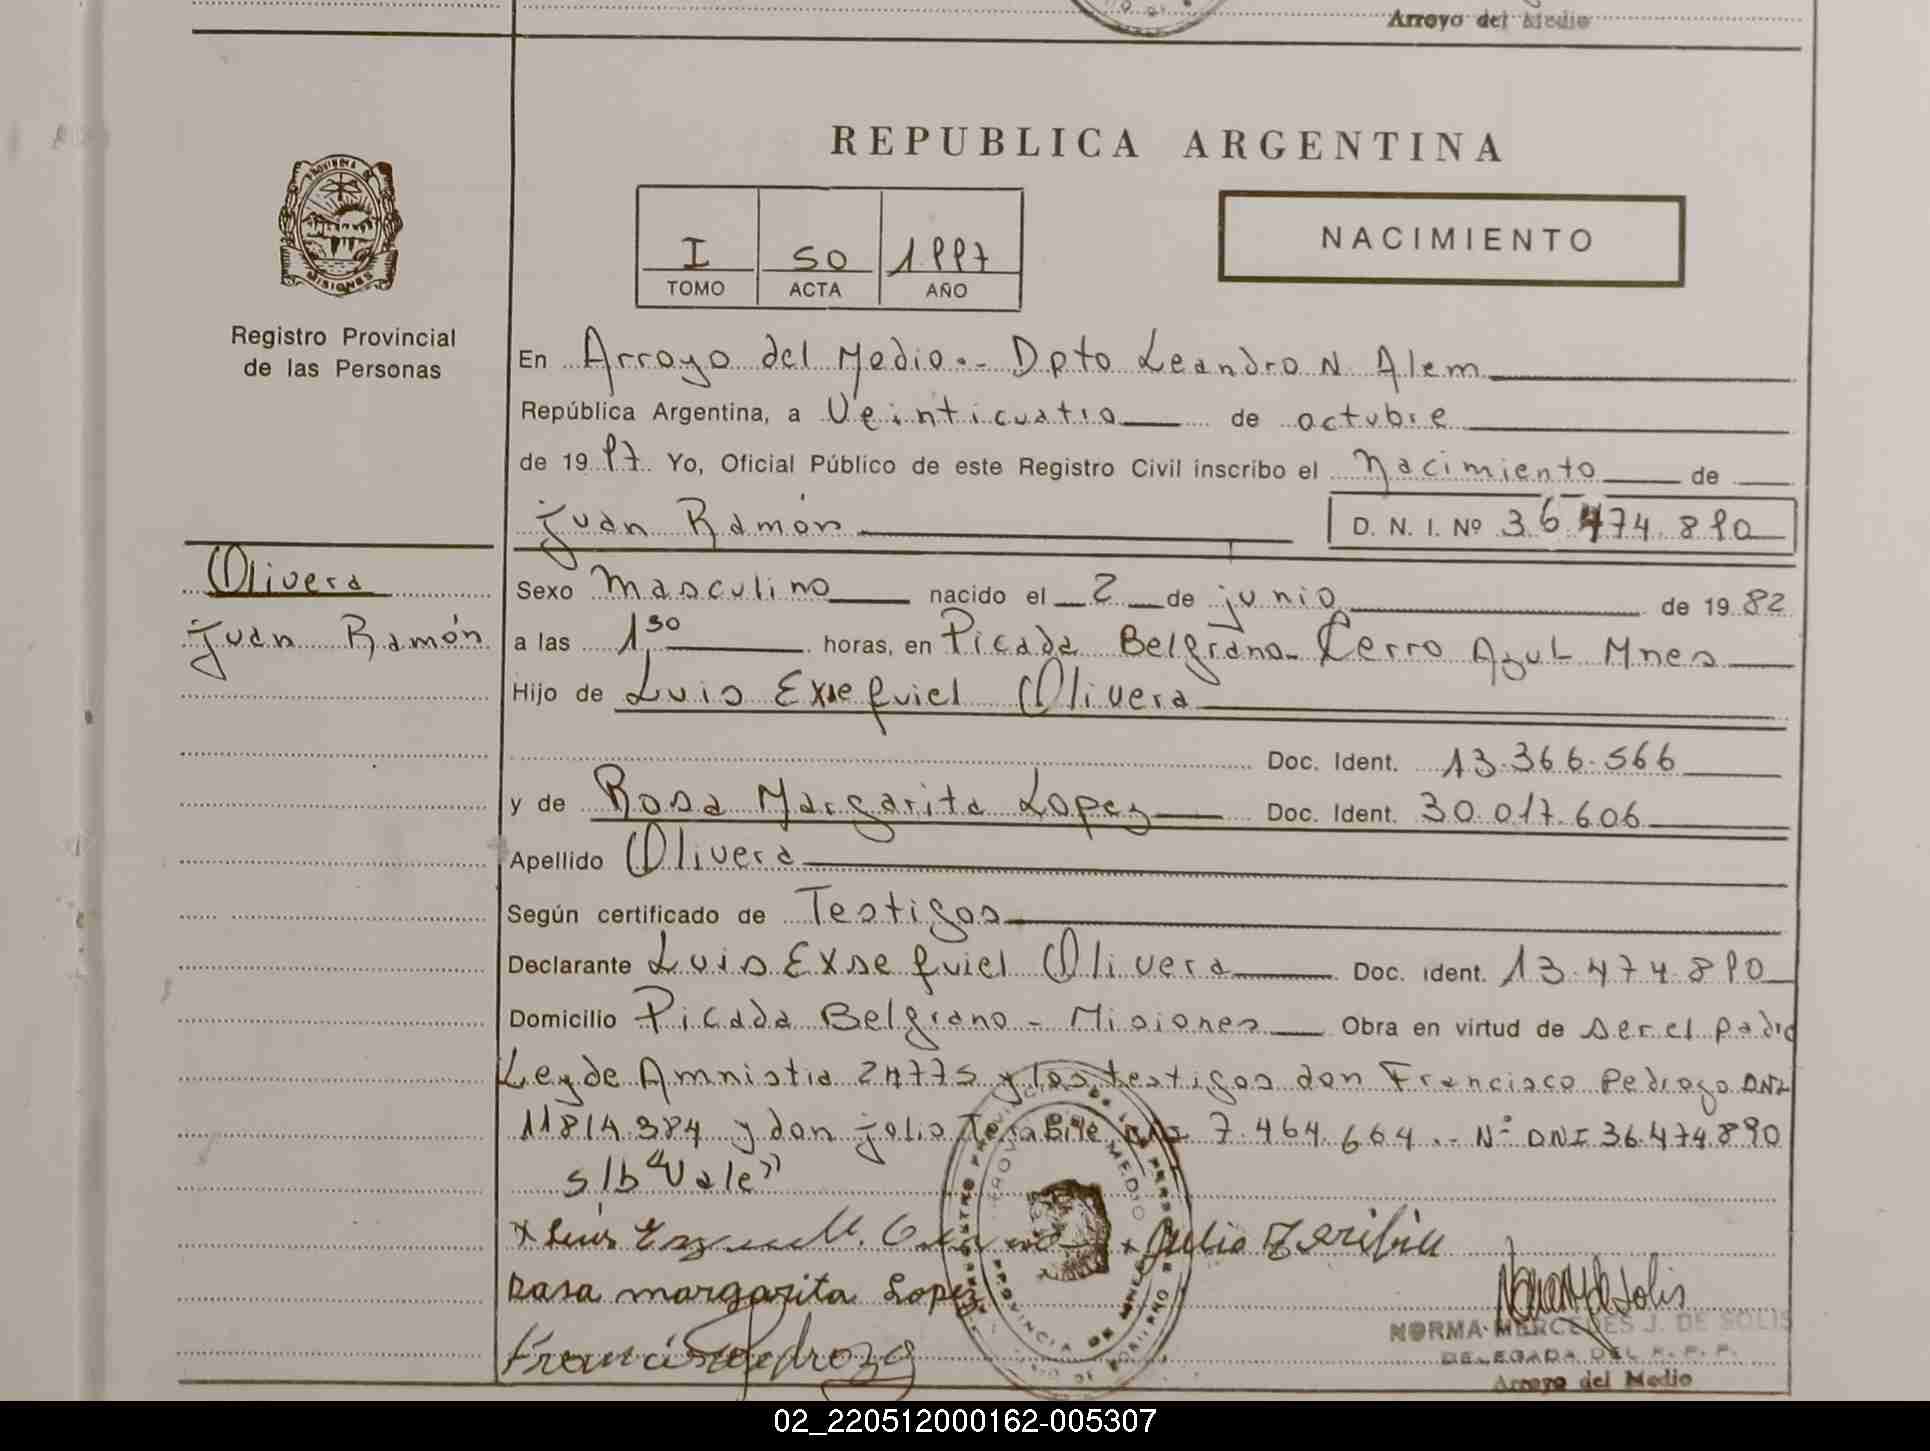 Arroyo del Medio
REPUBLICA ARGENTINA
PROVINCIA DE
MISIONES
Registro Provincial
de las Personas
I
TOMO
50
ACTA
1997
AÑO
NACIMIENTO
En Arroyo del Medio.- Dpto Leandro N. Alem
República Argentina, a Veinticuatro de octubre
de 1997 Yo, Oficial Público de este Registro Civil inscribo el Nacimiento de
Juan Ramón D. N. I. Nº 36.474.890
Olivera
Juan Ramón
Sexo Masculino nacido el 2 de junio de 1982
a las 1 30 horas, en Picada Belgrano- Cerro Azul Mnes
Hijo de Luis Exsequiel Olivera
Doc. Ident. 13.366.566
y de Rosa Margarita Lopez Doc. Ident. 30.017.606
Apellido Olivera
Según certificado de Testigos
Declarante Luis Exsequiel Olivera Doc. ident. 13.474.890
Domicilio Picada Belgrano - Misiones Obra en virtud de ser el padre
Ley de Amnistia 24775 y los testigos don Francisco Pedrozo DNI
11814.384 y don julio 7.464.664.- Nº DNI 36.474.890
s/b "Vale"
x Luis x Julio
Rosa margarita Lopez
Francisco Pedrozo
NORMA MERCEDES J. DE SOLIS
DELEGADA DEL R. P. P.
Arroyo del Medio
02_220512000162-005307